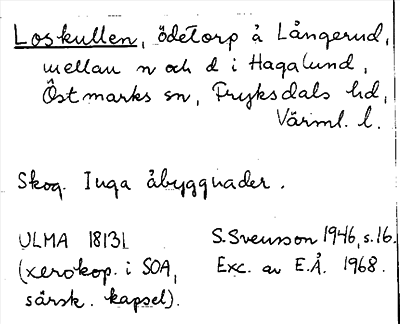 Loskullen, ödetorp å Långerud,
mellan n och d i Hagalund,
Östmarks sn, Fryksdals hd,
Värml. l.
Skog. Inga åbyggnader.
ULMA 18131 S. Svensson 1946, s. 16.
(xerokop. i SOA, Exc. av E.Å. 1968.
särsk. kapsel).